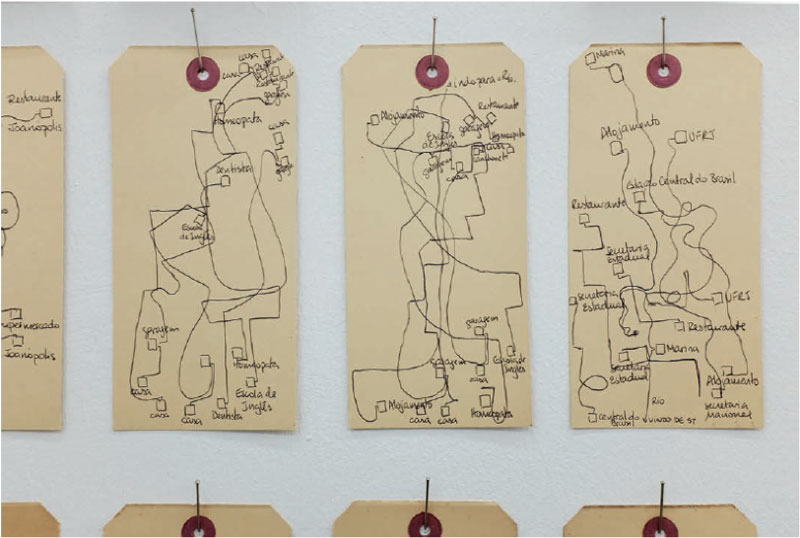 Restaurante
Joanopolis
Joanópolis
casa
casa
garagem
Homeopata
casa
Dentista
Escola
de Inglês
garagem
casa
casa
casa
Dentista
Homeopata
Escola de
Inglês
indo para o Rio.
Alojamento
Restaurante
garagem
Escola
de Inglês
Homeopata
casa
garagem
casa
garagem
garagem
casa
Escola de
Inglês
Alojamento
casa
casa
Homeopata
Marina
Alojamento
UFRJ
Estação Central do Brasil
Restaurante
Secretaria
Estadual
Secretaria
Estadual
UFRJ
Restaurante
Marina
Secretaria
Estadual
Alojamento
Secretaria
RIO
Central do
Brasil
VINDO DE ST